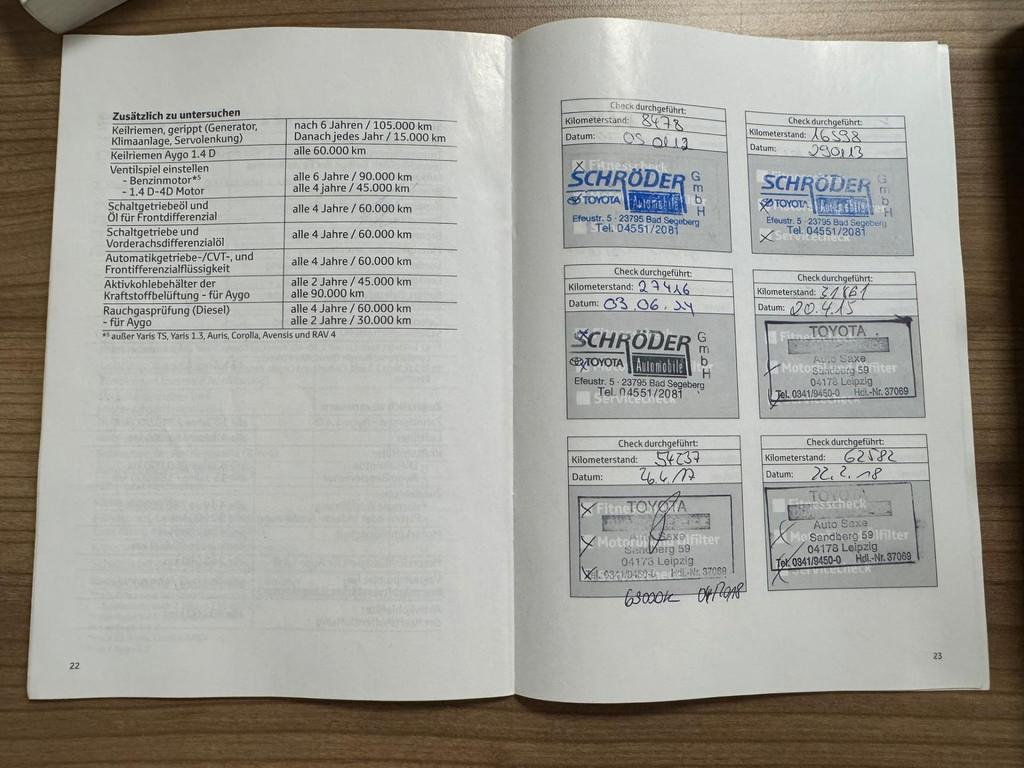 Zusätzlich zu untersuchen
Keilriemen, gerippt (Generator, Klimaanlage, Servolenkung) nach 6 Jahren / 105.000 km Danach jedes Jahr / 15.000 km
Keilriemen Aygo 1.4 D alle 60.000 km
Ventilspiel einstellen
- Benzinmotor*⁵ alle 6 Jahre / 90.000 km
- 1.4 D-4D Motor alle 4 jahre / 45.000 km
Schaltgetriebeöl und Öl für Frontdifferenzial alle 4 Jahre / 60.000 km
Schaltgetriebe und Vorderachsdifferenzialöl alle 4 Jahre / 60.000 km
Automatikgetriebe-/CVT-, und Frontifferenzialflüssigkeit alle 4 Jahre / 60.000 km
Aktivkohlebehälter der alle 2 Jahre / 45.000 km
Kraftstoffbelüftung - für Aygo alle 90.000 km
Rauchgasprüfung (Diesel) alle 4 Jahre / 60.000 km
- für Aygo alle 2 Jahre / 30.000 km
*⁵ außer Yaris TS, Yaris 1.3, Auris, Corolla, Avensis und RAV 4
22
Check durchgeführt:
Kilometerstand: 8478
Datum:
Fitnesscheck
SCHRÖDER GmbH
TOYOTA Automobile
Efeustr. 5 · 23795 Bad Segeberg
Tel. 04551/2081
Check durchgeführt:
Kilometerstand: 16598
Datum: 290113
SCHRÖDER GmbH
TOYOTA Automobile
Efeustr. 5 · 23795 Bad Segeberg
Tel. 04551/2081
Servicecheck
Check durchgeführt:
Kilometerstand: 27416
Datum: 03.06.14
SCHRÖDER GmbH
TOYOTA Automobile
Efeustr. 5 · 23795 Bad Segeberg
Tel. 04551/2081
Servicecheck
Check durchgeführt:
Kilometerstand: 31861
Datum: 20.4.15
TOYOTA
Auto Saxe
Sandberg 59
04178 Leipzig
Tel. 0341/9450-0 Hdl.-Nr. 37069
Check durchgeführt:
Kilometerstand: 54237
Datum: 26.4.17
TOYOTA
Saxe
Sandberg 59
04178 Leipzig
Tel. 0341/9450-0 Hdl.-Nr. 37069
63000k 04/2018
Check durchgeführt:
Kilometerstand: 62582
Datum: 22.2.18
Fitnesscheck
TOYOTA
Auto Saxe
Sandberg 59
04178 Leipzig
Tel. 0341/9450-0 Hdl.-Nr. 37069
Servicecheck
23